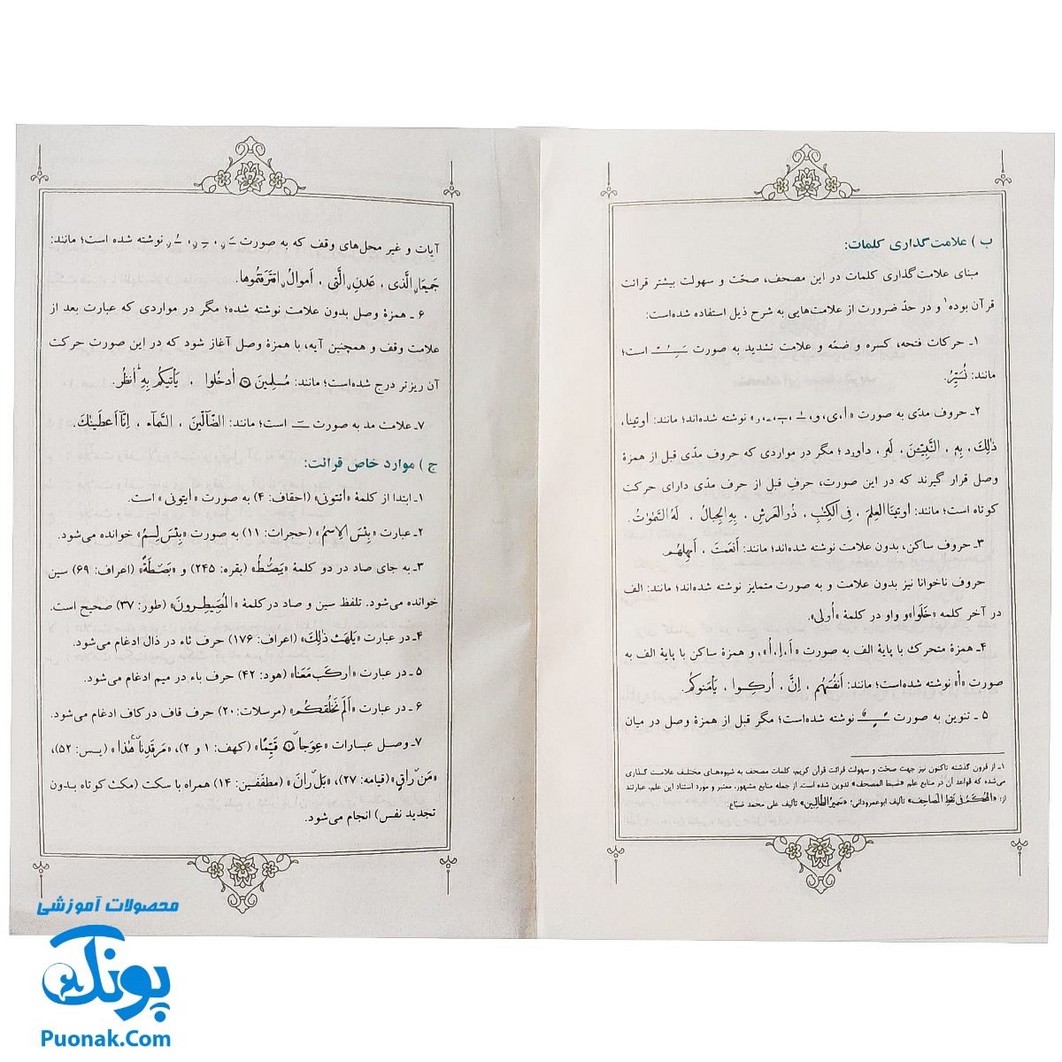 ب) علامت‌گذاری کلمات:
مبنای علامت‌گذاری کلمات در این مصحف، صحّت و سهولت بیشتر قرائت
قرآن بوده۱ و در حدّ ضرورت از علامت‌هایی به شرح ذیل استفاده شده‌است:
۱ـ حرکات فتحه، کسره و ضمّه و علامت تشدید به صورت است؛
مانند: نُسَیِّرُ.
۲ـ حروف مدّی به صورت نوشته شده‌اند؛ مانند: اوتینا،
ذٰلِكَ، بِهٖ، النَّبِيّٖنَ، لَهٗ، داوٗد؛ مگر در مواردی که حروف مدّی قبل از همزهٔ
وصل قرار گیرند که در این صورت، حرفِ قبل از حرف مدّی دارای حرکت
کوتاه است؛ مانند: اوتینَا العِلمَ، فِی الکِتٰبِ، ذُو العَرشِ، بِهِ الجِبالُ، لَهُ السَّمٰوٰتُ.
۳ـ حروف ساکن، بدون علامت نوشته شده‌اند؛ مانند: أنعَمتَ،
حروف ناخوانا نیز بدون علامت و به صورت متمایز نوشته شده‌اند؛ مانند: الف
در آخر کلمه «خَلَوا» و واو در کلمهٔ «اُولی».
۴ـ همزهٔ متحرک با پایهٔ الف به صورت «أ، إ، أ»، و همزهٔ ساکن با پایهٔ الف به
صورت «أ» نوشته شده‌است؛ مانند: أنفُسَهُم، إنَّ، أُركِسوا، يَأمَنوكُم.
۵ ـ تنوین به صورت نوشته شده‌است؛ مگر قبل از همزهٔ وصل در میان
۱ـ از قرون گذشته تاکنون نیز جهت صحّت و سهولت قرائت قرآن کریم، کلمات مصحف به شیوه‌های مختلف علامت گذاری
می‌شده که قواعد آن در منابع علم «ضبط المصحف» تدوین شده است. از جمله منابع مشهور، معتبر و مورد استناد این علم، عبارتند
از: «المُحکَم فی نَقطِ المَصاحِف» تألیف ابوعمرودانی؛ «سَمیرُ الطّالِبین» تألیف علی محمد ضبّاع.
آیات و غیر محل‌های وقف که به صورت نوشته شده است؛ مانند:
جَمیعًا الَّذی، عَدنٍ الَّتی، أموالٌ اقتَرَفتُموها.
۶ ـ همزهٔ وصل بدون علامت نوشته شده؛ مگر در مواردی که عبارت بعد از
علامت وقف و همچنین آیه، با همزهٔ وصل آغاز شود که در این صورت حرکت
آن ریزتر درج شده‌است؛ مانند: مُسلِمینَ ۝ اُدخُلوا، یَأتیکُم بِهِ اُنظُر.
۷ـ علامت مد به صورت است؛ مانند: الضّآلّینَ، السَّمآء، اِنّآ اَعطَینٰكَ.
ج) موارد خاص قرائت:
۱ـ ابتدا از کلمهٔ «اُئتونی» (احقاف: ۴) به صورت «ایتونی» است.
۲ـ عبارت «بِئسَ الِاسمُ» (حجرات: ۱۱) به صورت «بِئسَ لِسمُ» خوانده می‌شود.
۳ـ به جای صاد در دو کلمهٔ «یَبصُطُ» (بقره: ۲۴۵) و «بَصطَةً» (اعراف: ۶۹) سین
خوانده می‌شود. تلفظ سین و صاد در کلمهٔ «المُصَیطِرونَ» (طور: ۳۷) صحیح است.
۴ـ در عبارت «یَلهَث ذٰلِكَ» (اعراف: ۱۷۶) حرف ثاء در ذال ادغام می‌شود.
۵ ـ در عبارت «ارکَب مَعَنا» (هود: ۴۲) حرف باء در میم ادغام می‌شود.
۶ ـ در عبارت «اَلَم نَخلُقکُم» (مرسلات: ۲۰) حرف قاف در کاف ادغام می‌شود.
۷ـ وصل عبارات «عِوَجًا ۝ قَیِّمًا» (کهف: ۱ و ۲)، «مَرقَدِنا هٰذا» (یس: ۵۲)،
«مَن راقٍ» (قیامه: ۲۷)، «بَل رانَ» (مطففین: ۱۴) همراه با سکت (مکث کوتاه بدون
تجدید نفس) انجام می‌شود.
محصولات آموزشی
پونک
Puonak.Com